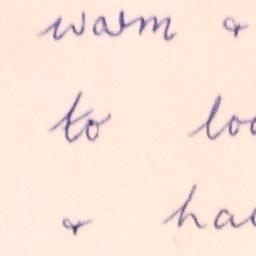 warm &
to loo
& ha